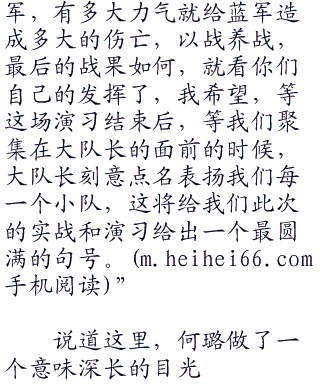 军，有多大力气就给蓝军造
成多大的伤亡，以战养战，
最后的战果如何，就看你们
自己的发挥了，我希望，等
这场演习结束后，等我们聚
集在大队长的面前的时候，
大队长刻意点名表扬我们每
一个小队，这将给我们此次
的实战和演习给出一个最圆
满的句号。(m.heihei66.com
手机阅读)”
说道这里，何璐做了一
个意味深长的目光